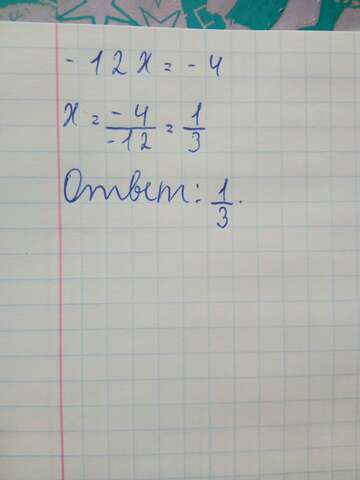 -12x = -4
x = -4/-12 = 1/3
Ответ: 1/3.